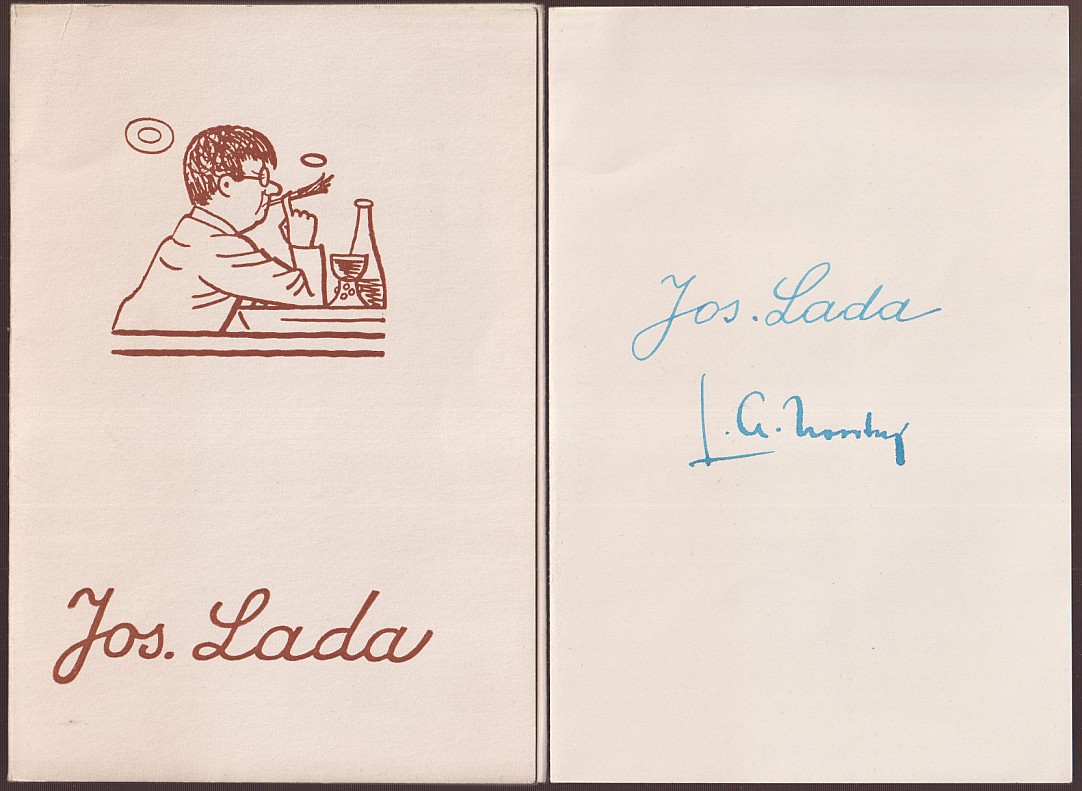 Jos. Lada
Jos. Lada
L. A. Novotny